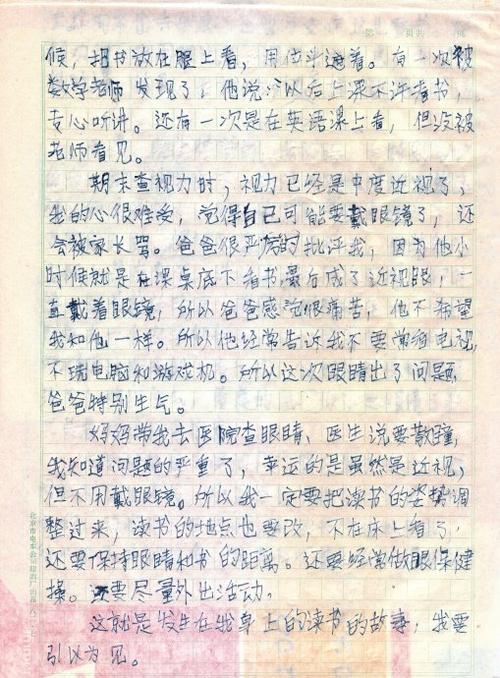 候，把书放在腿上看，用位斗遮着。有一次被
数学老师发现了，他说："以后上课不许看书，
专心听讲。还有一次是在英语课上看，但没被
老师看见。
期末查视力时，视力已经是中度近视了，
我的心很难受，觉得自己可能要戴眼镜了，还
会被家长骂。爸爸很严厉的批评我，因为他小
时候就是在课桌底下看书最后成了近视眼，一
直戴着眼镜，所以爸爸感觉很痛苦，他不希望
我和他一样。所以他经常告诉我不要常看电视，
不玩电脑和游戏机。所以这次眼睛出了问题，
爸爸特别生气。
妈妈带我去医院查眼睛，医生说要散瞳，
我知道问题的严重了，幸运的是虽然是近视，
但不用戴眼镜。所以我一定要把读书的姿势调
整过来，读书的地点也要改，不在床上看了，
还要保持眼睛和书的距离。还要经常做眼保健
操。还要尽量外出活动。
这就是发生在我身上的读书的故事，我要
引以为见。